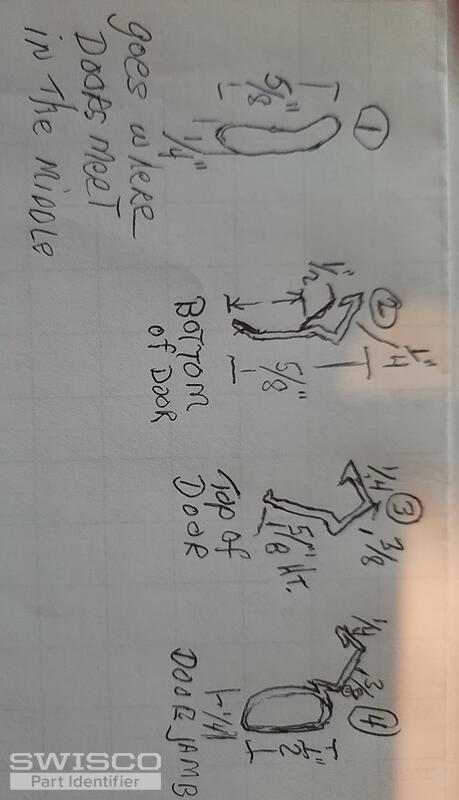 1
5/8"
1/4"
goes where
Doors meet
in The Middle
2
1/2"
1/4"
5/8"
Bottom
of Door
3
1/4
3/8
5/8" Ht.
Top of
Door
4
1/4
3/8
1/4
1/2"
Door Jamb
SWISCO
Part Identifier